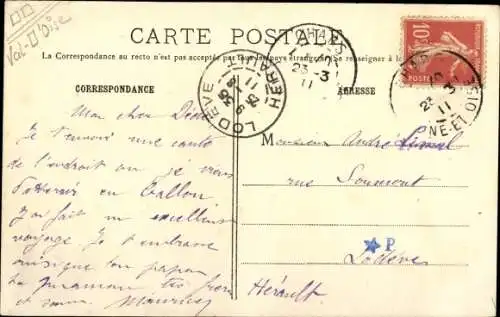 Val-D'Oise
CARTE POSTALE
La Correspondance au recto n'est pas acceptée par tous les pays étrangers. Se renseigner à la
CORRESPONDANCE
ADRESSE
CHARS
23 -3
11
LODÈVE
HÉRAULT
11
10c
CHARS
23 3
11
NE-ET-OISE
Mon cher
Je t'envoie une carte
de l'endroit où je viens
d'atterrir en ballon.
J'ai fait un excellent
voyage. Je t'embrasse
ainsi que ton papa
ta maman
Maurice
Monsieur André
rue Soumont
P
Lodève
Hérault